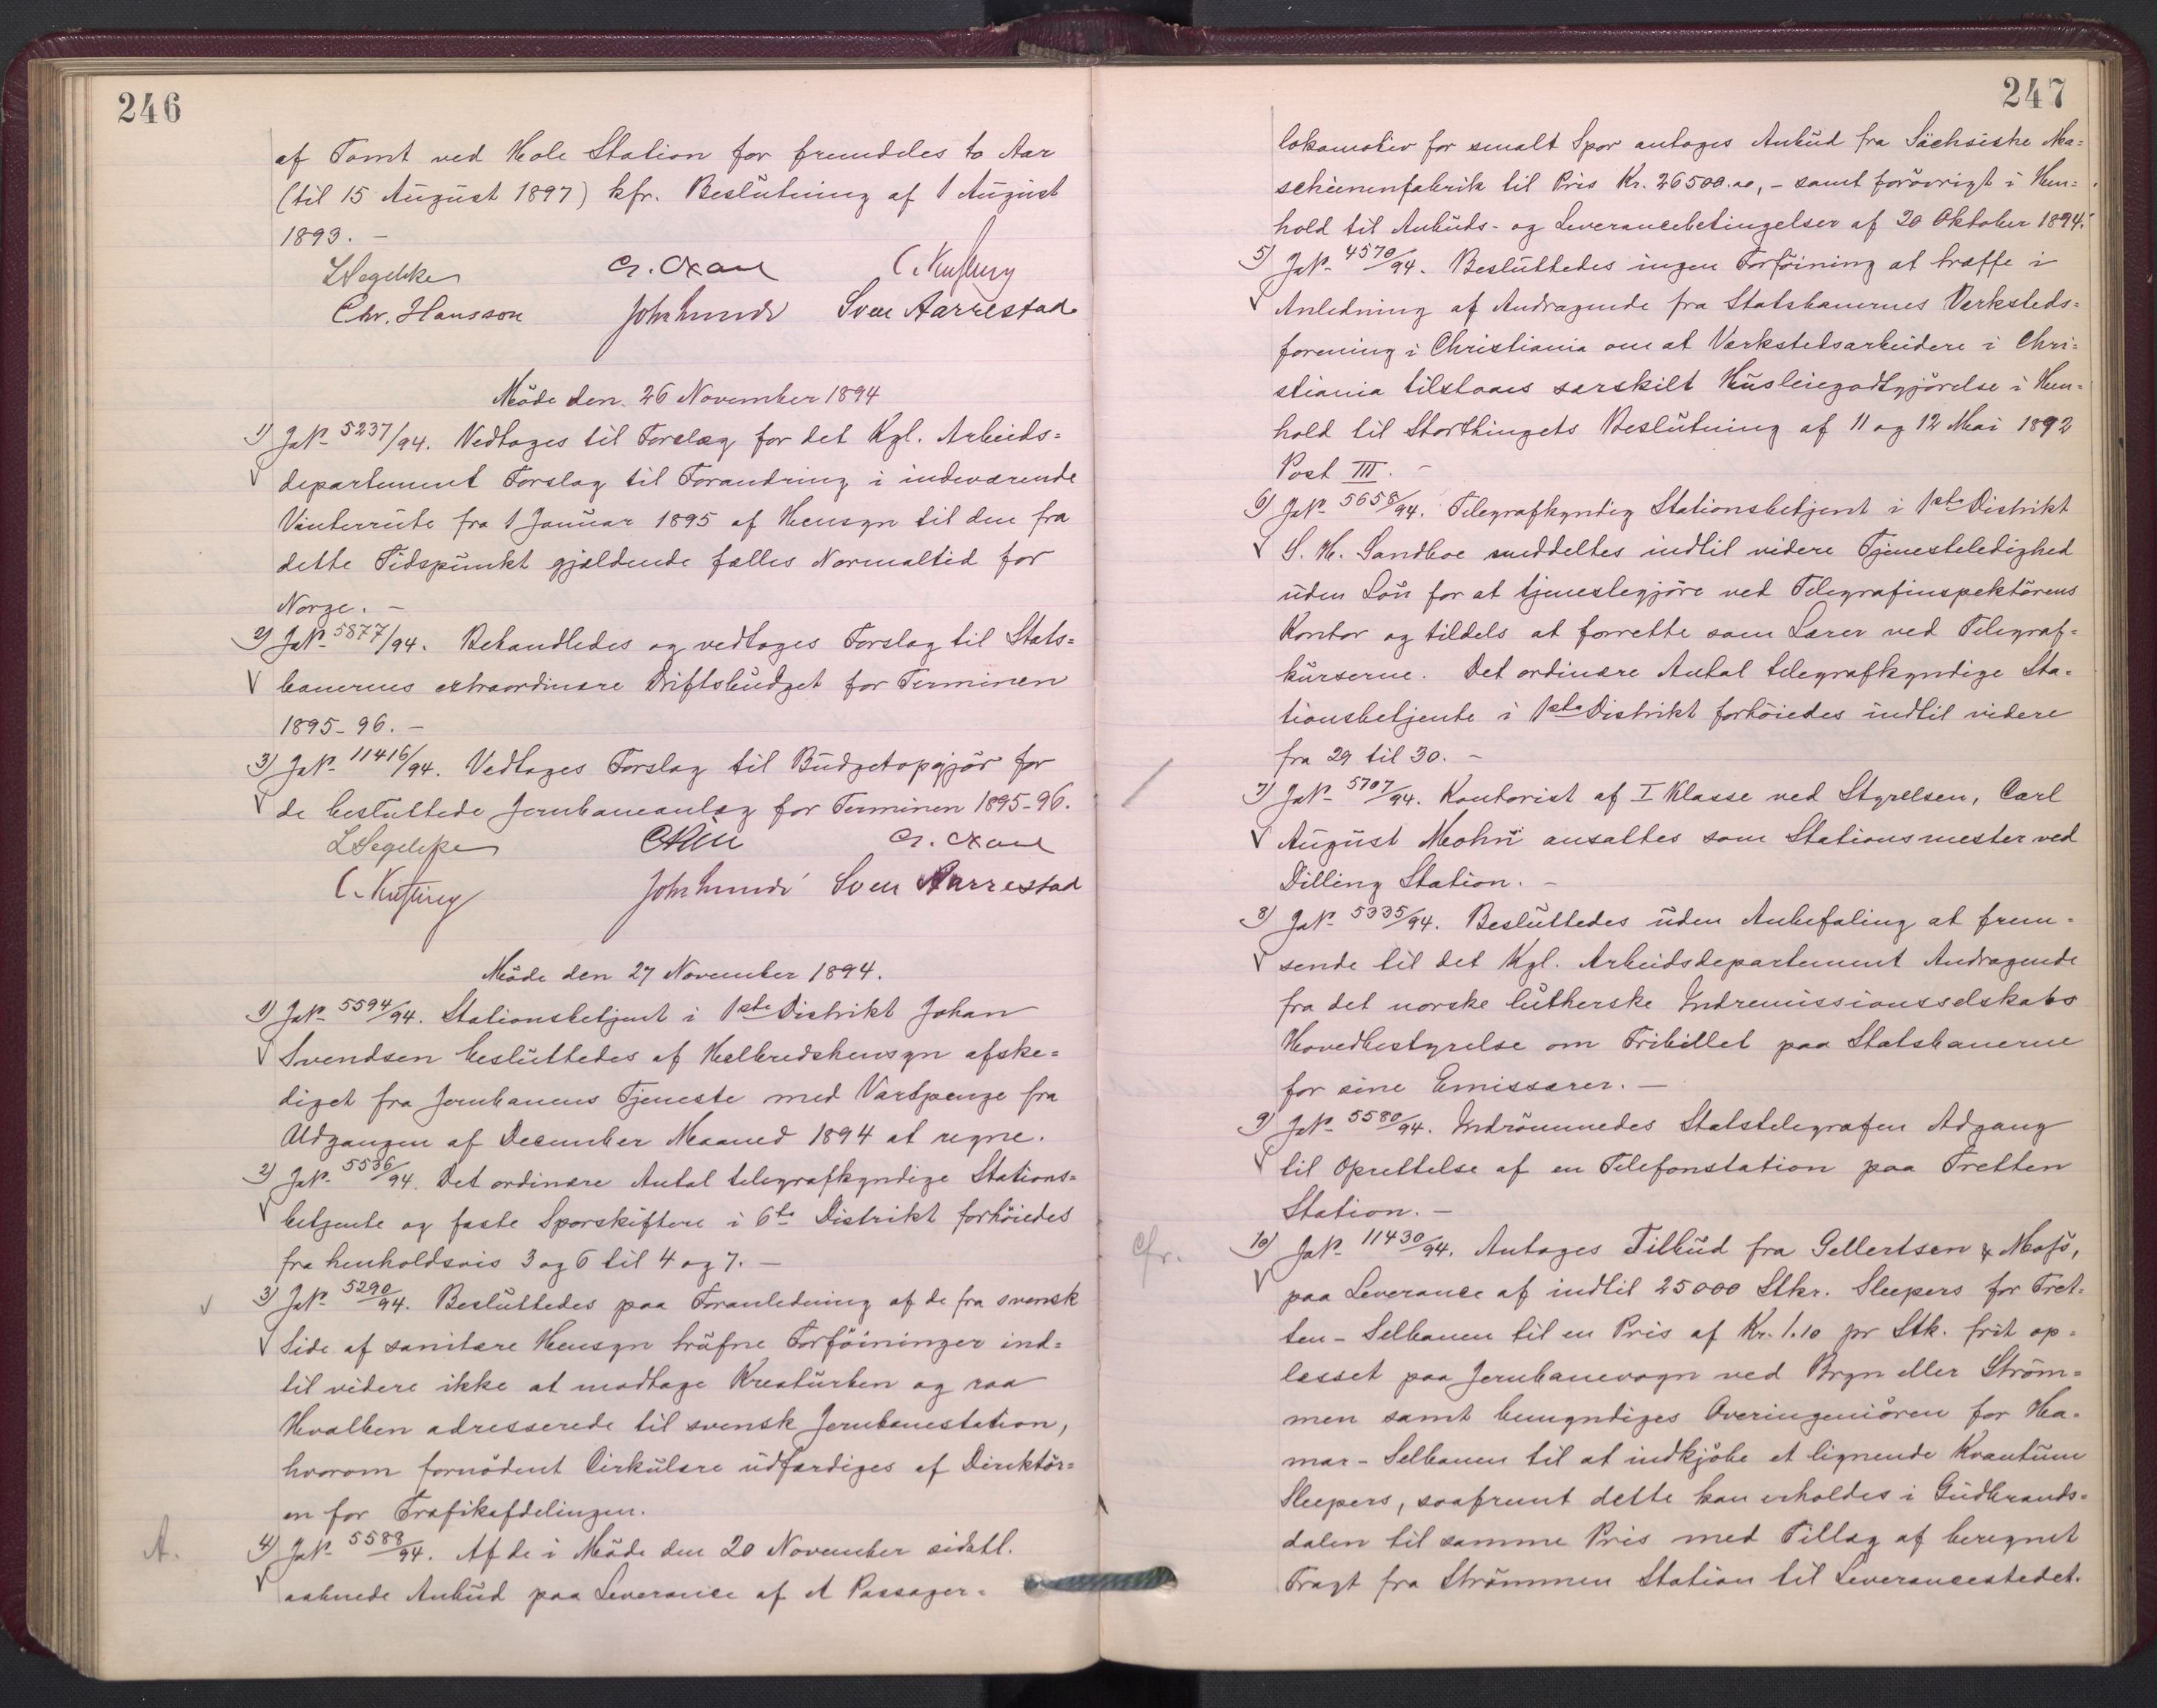 246
af Tomt ved Hole Station for fremdeles to Aar
(til 15 August 1897) kfr. Beslutning af 1 August
1893. -
LSegelcke
Chr. Hansson
Sven Aarrestad
Möde den 26 November 1894
1) JaNo 5237/94. Vedtoges til Forelæg for det Kgl. Arbeids=
departement Forslag til Forandring i indeværende
Vinterrute fra 1 Januar 1895 af Hensyn til den fra
dette Tidspunkt gjældende fælles Normaltid for
Norge. -
2) JaNo 5877/94. Behandledes og vedtoges Forslag til Stats=
banernes extraordinære Driftsbudget for Terminen
1895-96. -
3) JaNo 11416/94. Vedtoges Forslag til Budgetopgjör for
de besluttede Jernbaneanlæg for Terminen 1895-96.
LSegelcke
Sven Aarrestad
Möde den 27 November 1894.
1) JaNo 5594/94. Stationsbetjent i 1ste Distrikt Johan
Svendsen besluttedes af Helbredshensyn afske=
diget fra Jernbanens Tjeneste med Vartpenge fra
Udgangen af December Maaned 1894 at regne.
2) JaNo 5536/94. Det ordinære Antal telegrafkyndige Stations=
betjente og faste Sporskiftere i 6te Distrikt forhöiedes
fra henholdsvis 3 og 6 til 4 og 7. -
3) JaNo 5290/94. Besluttedes paa Foranledning af de fra svensk
Side af sanitære Hensyn trufne Forföininger ind=
til videre ikke at modtage Kreaturben og raa
Hvalben adresserede til svensk Jernbanestation,
hvorom fornödent Cirkulære udfærdiges af Direktör=
en for Trafikafdelingen.
A. 4) JaNo 5588/94. Af de i Möde den 20 November sidstl.
aabnede Anbud paa Leverance af et Passager=
247
lokomotiv for smalt Spor antoges Anbud fra Sächsishe Ma=
schienenfabrik til Pris Kr. 26500.00, - samt forövrigt i Hen=
hold til Anbuds- og Leverancebetingelser af 20 Oktober 1894.
5) JaNo 4570/94. Besluttedes ingen Forföining at træffe i
Anledning af Andragende fra Statsbanernes Verksteds=
forening i Christiania om at Værkstedsarbeidere i Chri=
stiania tilstaaes særskilt Husleiegodtgjörelse i Hen=
hold til Storthingets Beslutning af 11 og 12 Mai 1892
Post III. -
6) JaNo 5658/94. Telegrafkyndig Stationsbetjent i 1ste Distrikt
S. H. Sandboe meddeltes indtil videre Tjenesteledighed
uden Lön for at tjenestegjöre ved Telegrafinspektörens
Kontor og tildels at forrette som Lærer ved Telegraf=
kurserne. Det ordinære Antal telegrafkyndige Sta=
tionsbetjente i 1ste Distrikt forhöiedes indtil videre
fra 29 til 30. -
7) JaNo 5707/94. Kontorist af I Klasse ved Styrelsen, Carl
August Mohn ansattes som Stationsmester ved
Dilling Station. -
8) JaNo 5335/94. Besluttedes uden Anbefaling at frem=
sende til det Kgl. Arbeidsdepartement Andragende
fra det norske lutherske Indremissionsselskabs
Hovedbestyrelse om Fribillet paa Statsbanerne
for sine Emissærer. -
9) JaNo 5580/94. Indrömmedes Statstelegrafen Adgang
til Oprettelse af en Telefonstation paa Tretten
Station. -
cfr. 10) JaNo 11430/94. Antoges Tilbud fra Gellertsen & Moss,
paa Leverance af indtil 25000 Stkr. Sleepers for Tret=
ten - Selbanen til en Pris af Kr. 1.10 pr Stk. frit op=
læsset paa Jernbanevogn ved Bryn eller Ström=
men samt bemyndiges Overingeniören for Ha=
mar - Selbanen til at indkjöbe et lignende Kvantum
Sleepers, saafremt dette kan erholdes i Gudbrands=
dalen til samme Pris med Tillæg af beregnet
Fragt fra Strömmen Station til Leverancestedet.